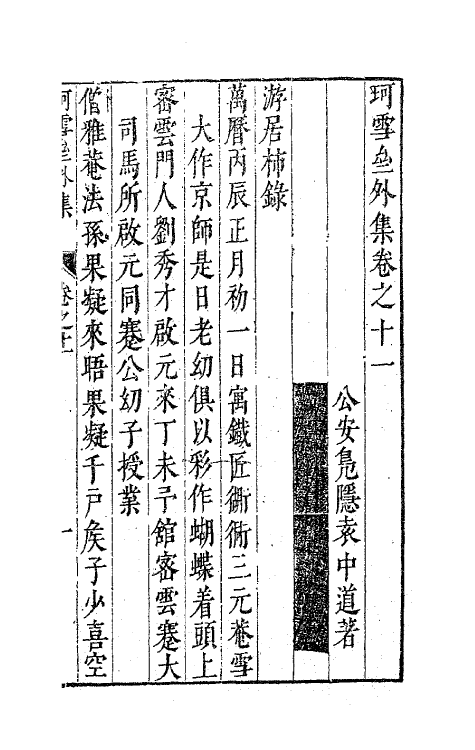 珂雪齋外集卷之十一
公安鳧隱袁中道著
游居柿錄
萬曆丙辰正月初一日寓鐵匠衚衕三元菴雪
大作京師是日老幼俱以彩作蝴蝶着頭上
密雲門人劉秀才啟元來丁未予舘密雲蹇大
司馬所啟元同蹇公幼子授業
僧雅菴法孫果凝來晤果凝千戸矦子少喜空
珂雪齋外集
卷之十一
一